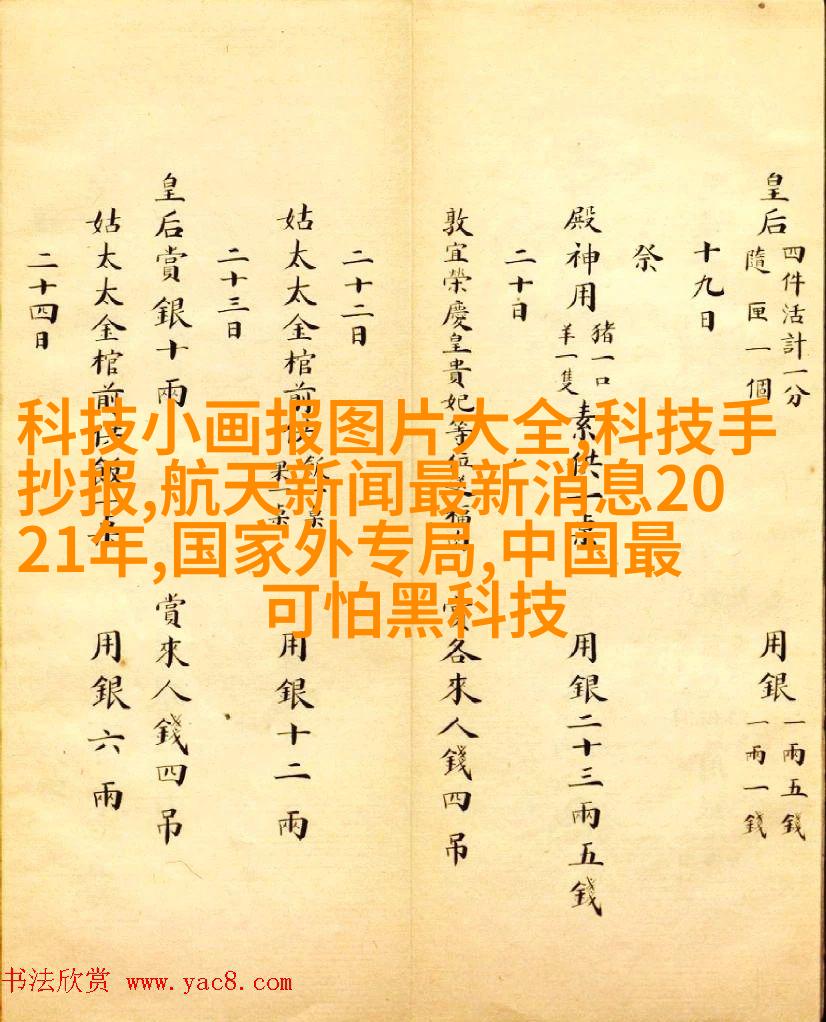 皇后 四件活計一分 隨匣一個 用銀 一兩五錢 一兩一錢
十九日
祭
殿神用 豬一口 羊一隻 素供一桌 用銀二十三兩五錢
二十日
敦宜榮慶皇貴妃等位 福 賞各來人錢四吊
二十二日
姑太太金棺前供 飯一桌 果一桌 用銀十二兩
二十三日
皇后賞銀十兩 賞來人錢四吊
姑太太金棺前供飯一桌 用銀六兩
二十四日
科技小画报图片大全,科技手
抄报,航天新闻最新消息20
21年,国家外专局,中国最
可怕黑科技
书法欣赏 www.yac8.com